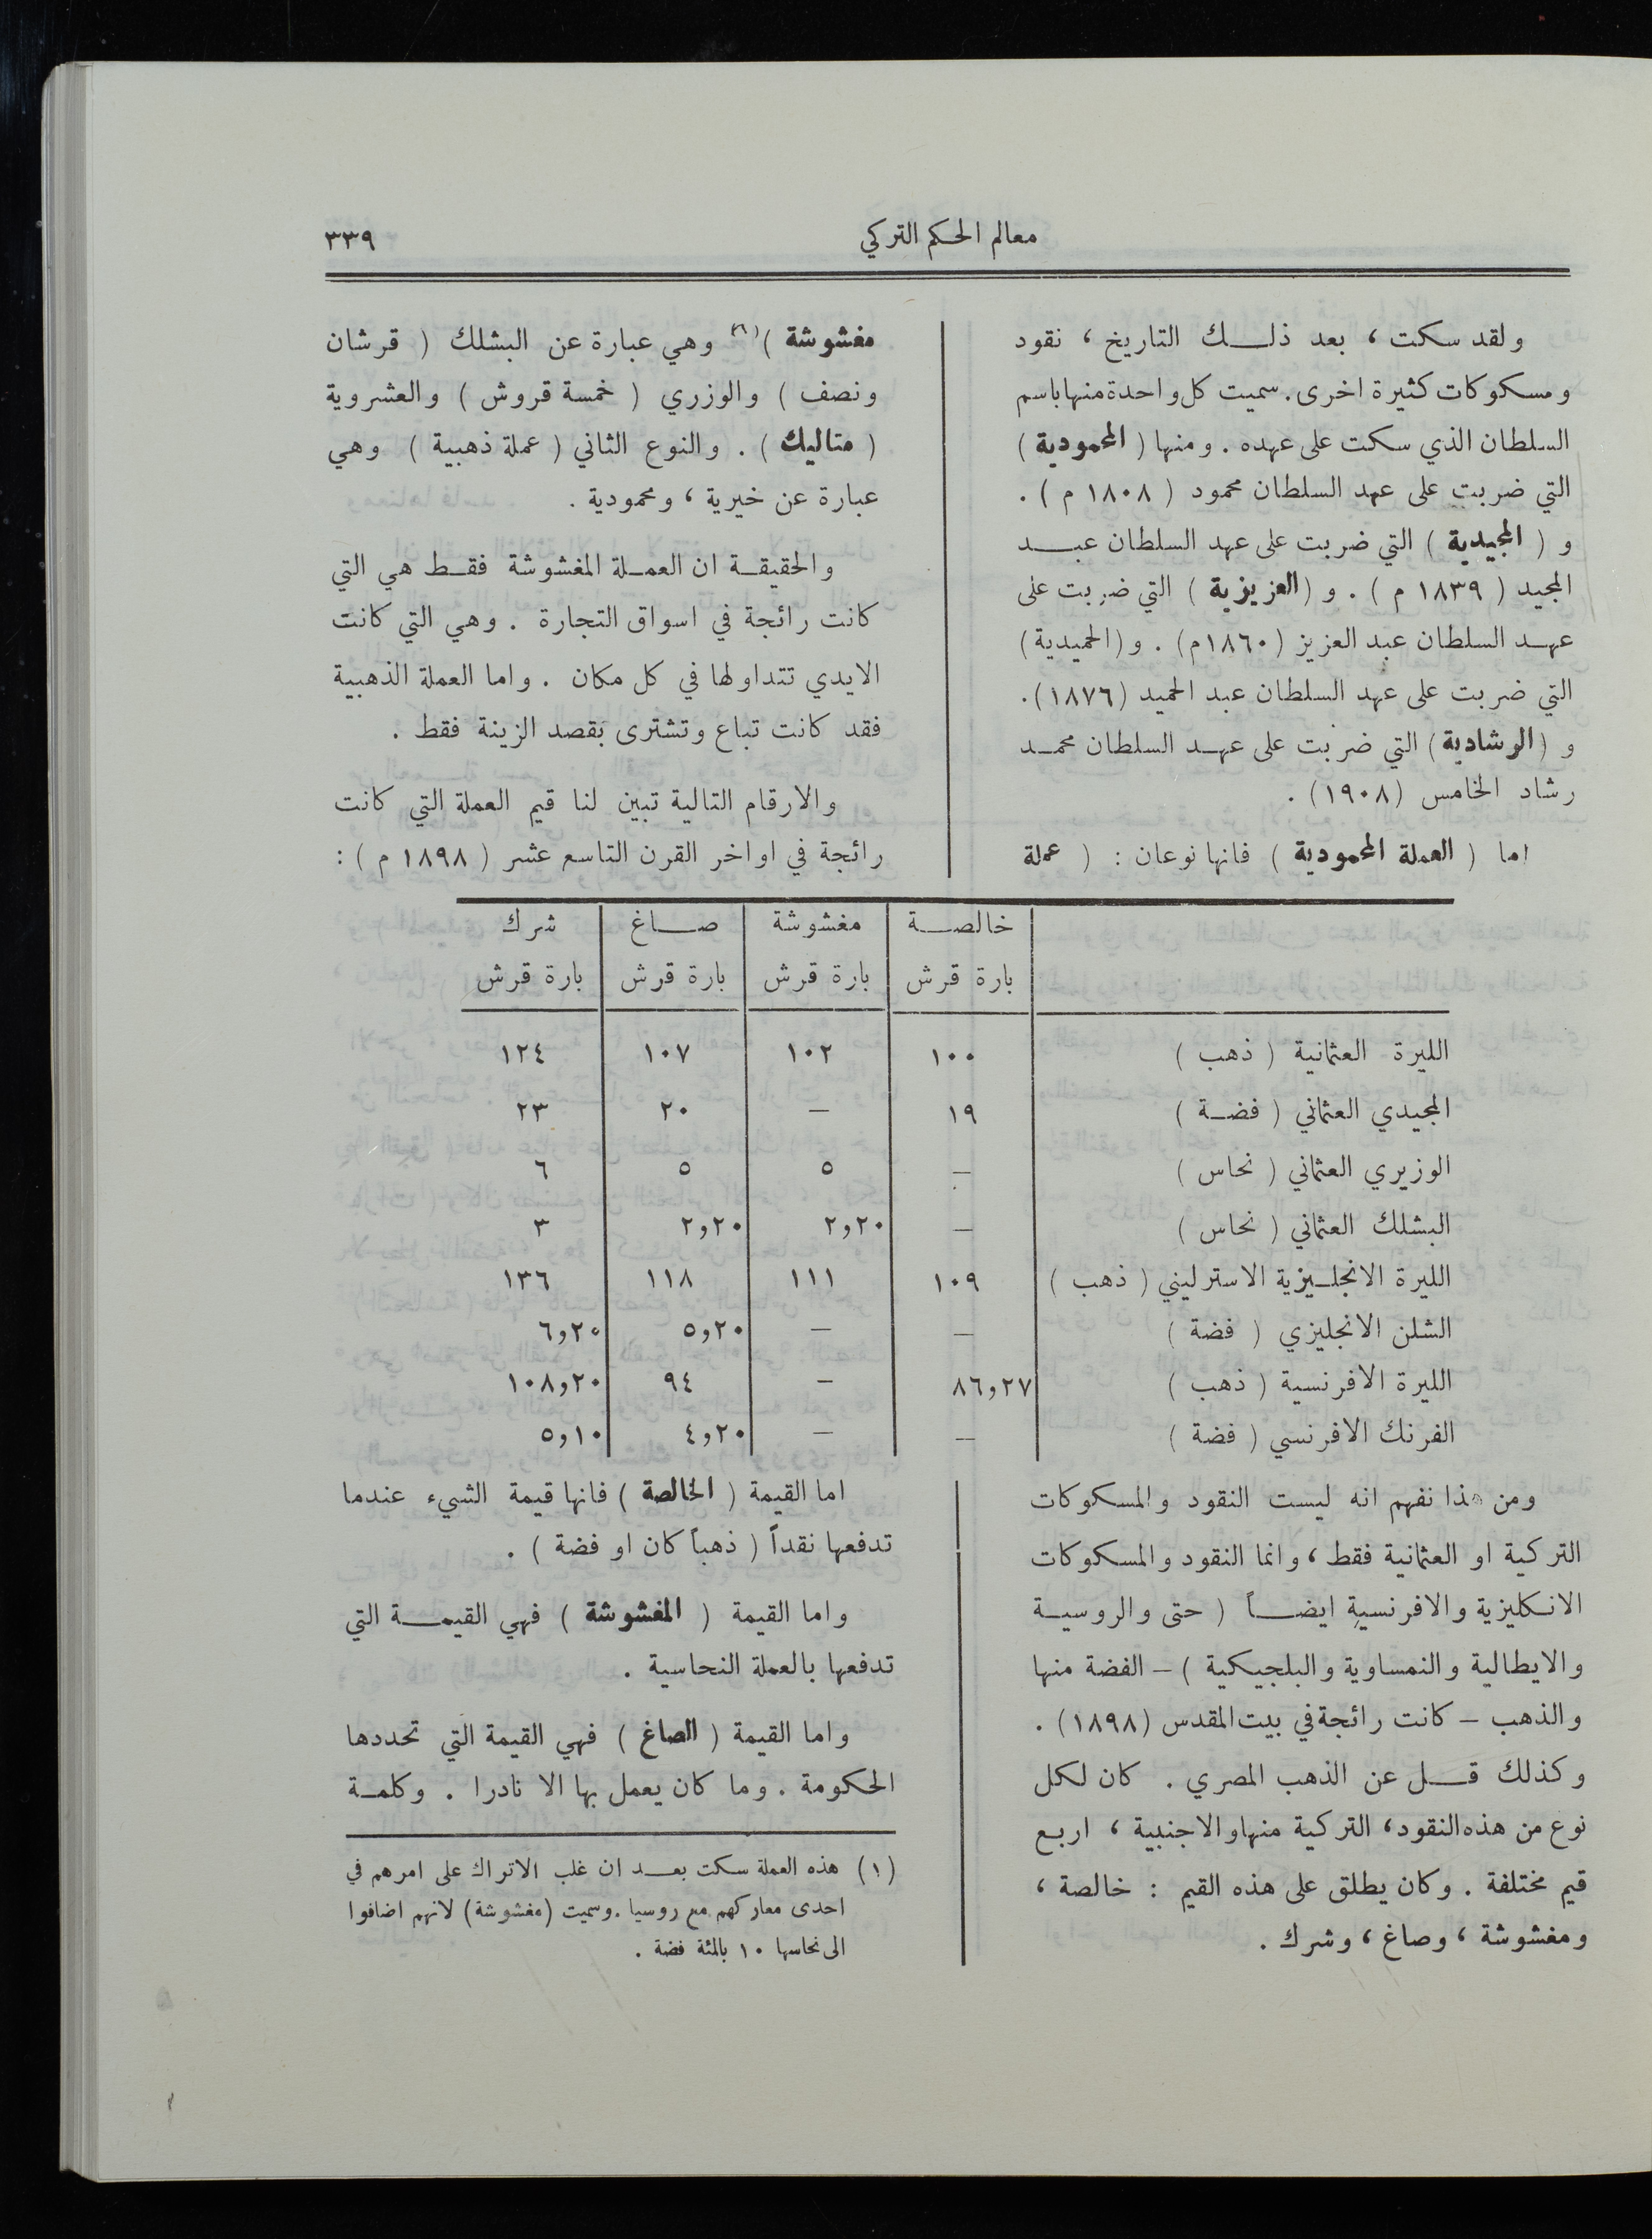 معالم الحكم التركي
٣٣٩
ولقد سكت ، بعد ذلك التاريخ ، نقود
ومسكوكات كثيرة اخرى . سميت كل واحدة منها باسم
السلطان الذي سكت على عهده . ومنها ( المحمودية )
التي ضربت على عهد السلطان محمود ( ١٨٠٨ م ) .
و ( المجيدية ) التي ضربت على عهد السلطان عبد
المجيد ( ١٨٣٩ م ) . و ( العزيزية ) التي ضربت على
عهد السلطان عبد العزيز ( ١٨٦٠م ) . و ( الحميدية )
التي ضربت على عهد السلطان عبد الحميد (١٨٧٦) .
و ( الرشادية ) التي ضربت على عهد السلطان محمد
رشاد الخامس (١٩٠٨) .
اما ( العملة المحمودية ) فانها نوعان : ( عملة
مغشوشة )(١) وهي عبارة عن البشلك ( قرشان
ونصف ) والوزري ( خمسة قروش ) والعشروية
( متاليك ) . والنوع الثاني ( عملة ذهبية ) وهي
عبارة عن خيرية ، ومحمودية .
والحقيقة ان العملة المغشوشة فقط هي التي
كانت رائجة في اسواق التجارة . وهي التي كانت
الايدي تتداولها في كل مكان . واما العملة الذهبية
فقد كانت تباع وتشترى بقصد الزينة فقط .
والارقام التالية تبين لنا قيم العملة التي كانت
رائجة في اواخر القرن التاسع عشر ( ١٨٩٨ م ) :
خالصة مغشوشة صاغ شرك
بارة قرش بارة قرش بارة قرش بارة قرش
الليرة العثمانية ( ذهب ) ١٠٠ ١٠٢ ١٠٧ ١٢٤
المجيدي العثماني ( فضة ) ١٩ — ٢٠ ٢٣
الوزيري العثماني ( نحاس ) — ٥ ٥ ٦
البشلك العثماني ( نحاس ) — ٢,٢٠ ٢,٢٠ ٣
الليرة الانجليزية الاسترليني ( ذهب ) ١٠٩ ١١١ ١١٨ ١٣٦
الشلن الانجليزي ( فضة ) — — ٥,٢٠ ٦,٢٠
الليرة الافرنسية ( ذهب ) ٨٦,٢٧ — ٩٤ ١٠٨,٢٠
الفرنك الافرنسي ( فضة ) — — ٤,٢٠ ٥,١٠
ومن هذا نفهم انه ليست النقود والمسكوكات
التركية او العثمانية فقط ، وانما النقود والمسكوكات
الانكليزية والافرنسية ايضاً ( حتى والروسية
والايطالية والنمساوية والبلجيكية ) – الفضة منها
والذهب – كانت رائجة في بيت المقدس (١٨٩٨) .
وكذلك قل عن الذهب المصري . كان لكل
نوع من هذه النقود ، التركية منها والاجنبية ، اربع
قيم مختلفة . وكان يطلق على هذه القيم : خالصة ،
ومغشوشة ، وصاغ ، وشرك .
اما القيمة ( الخالصة ) فانها قيمة الشيء عندما
تدفعها نقداً ( ذهباً كان او فضة ) .
واما القيمة ( المغشوشة ) فهي القيمة التي
تدفعها بالعملة النحاسية .
واما القيمة ( الصاغ ) فهي القيمة التي تحددها
الحكومة . وما كان يعمل بها الا نادرا . وكلمة
(١) هذه العملة سكت بعد ان غلب الاتراك على امرهم في
احدى معاركهم مع روسيا . وسميت (مغشوشة) لانهم اضافوا
الى نحاسها ١٠ بالمئة فضة .